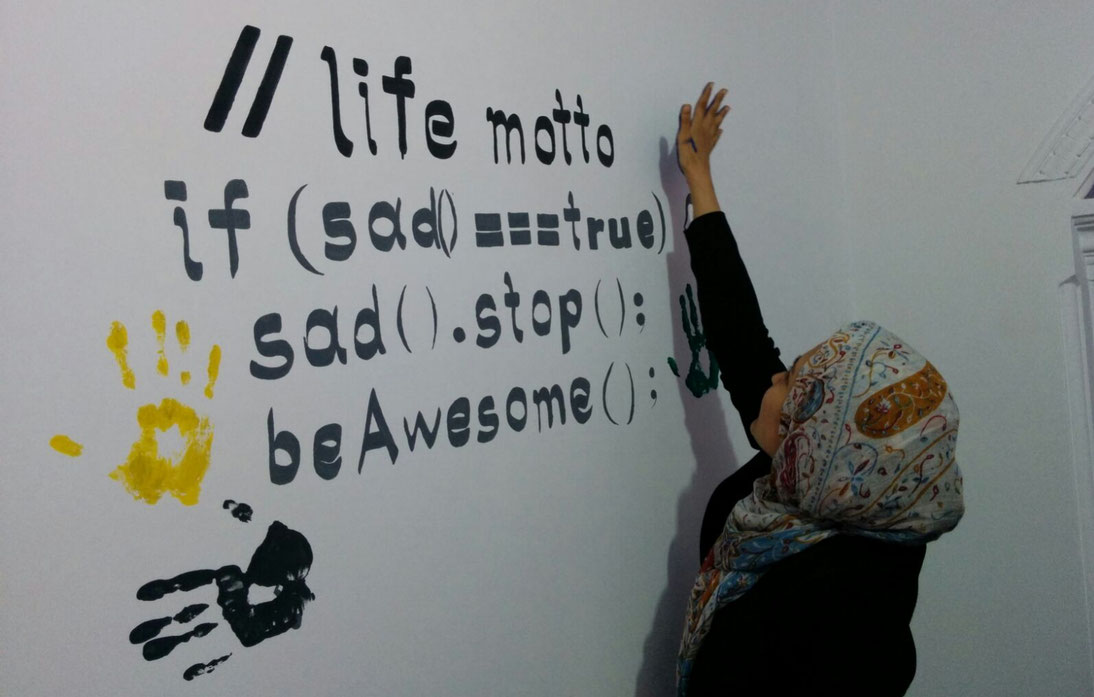 // life motto
if (sad() ===true)
sad().stop();
beAwesome();